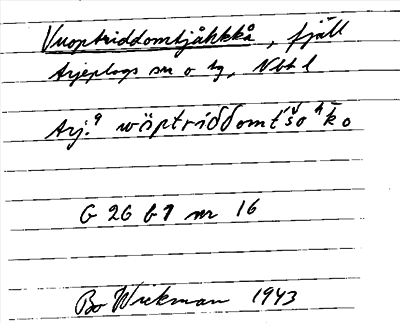 Vuoptriddomtjåhkkå, fjäll
Arjeplogs sn o tg, Nbt l
Arj.⁹ wöptriδδomt́šoʰk̄o
G 26 b 9 nr 16
Bo Wickman 1943